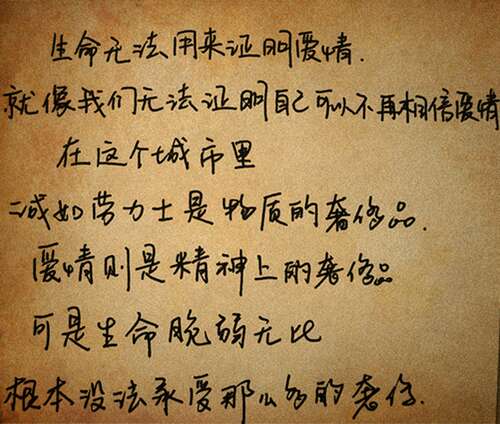 生命无法用来证明爱情.
就像我们无法证明自己可以不再相信爱情
在这个城市里
诚如劳力士是物质的奢侈品.
爱情则是精神上的奢侈品
可是生命脆弱无比
根本没法承受那么多的奢侈.